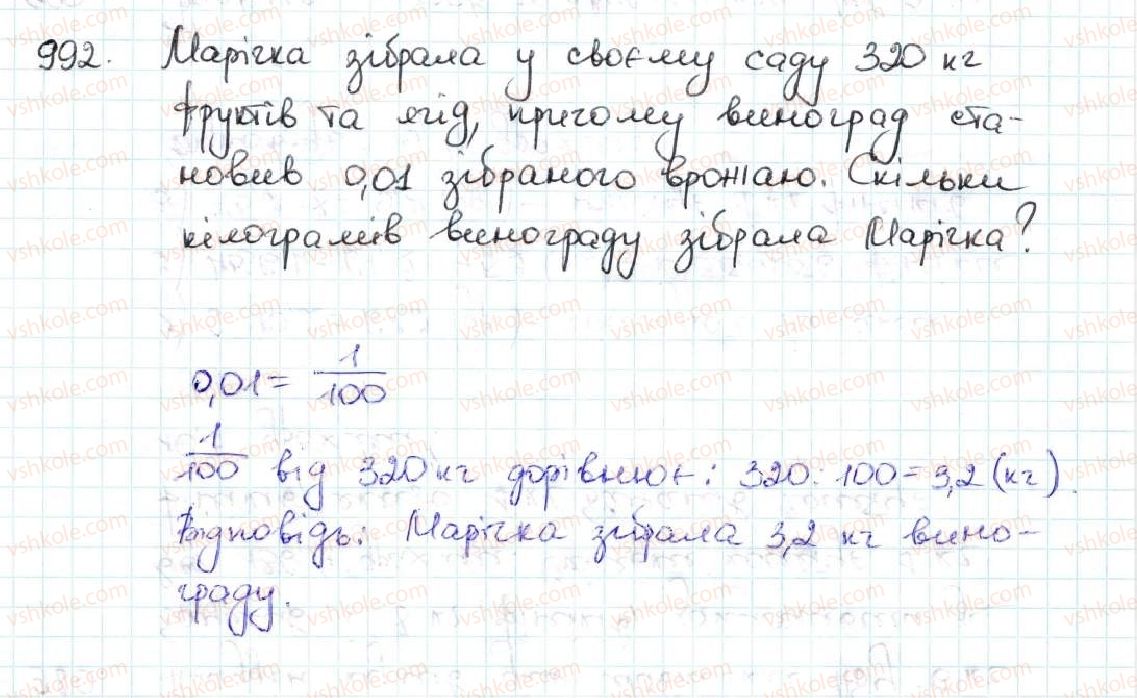 992. Марічка зібрала у своєму саду 320 кг
фруктів та ягід, причому виноград ста-
новив 0,01 зібраного врожаю. Скільки
кілограмів винограду зібрала Марічка?
0,01 = 1/100
1/100 від 320 кг дорівнює: 320 : 100 = 3,2 (кг).
Відповідь: Марічка зібрала 3,2 кг вино-
граду.
vshkole.com